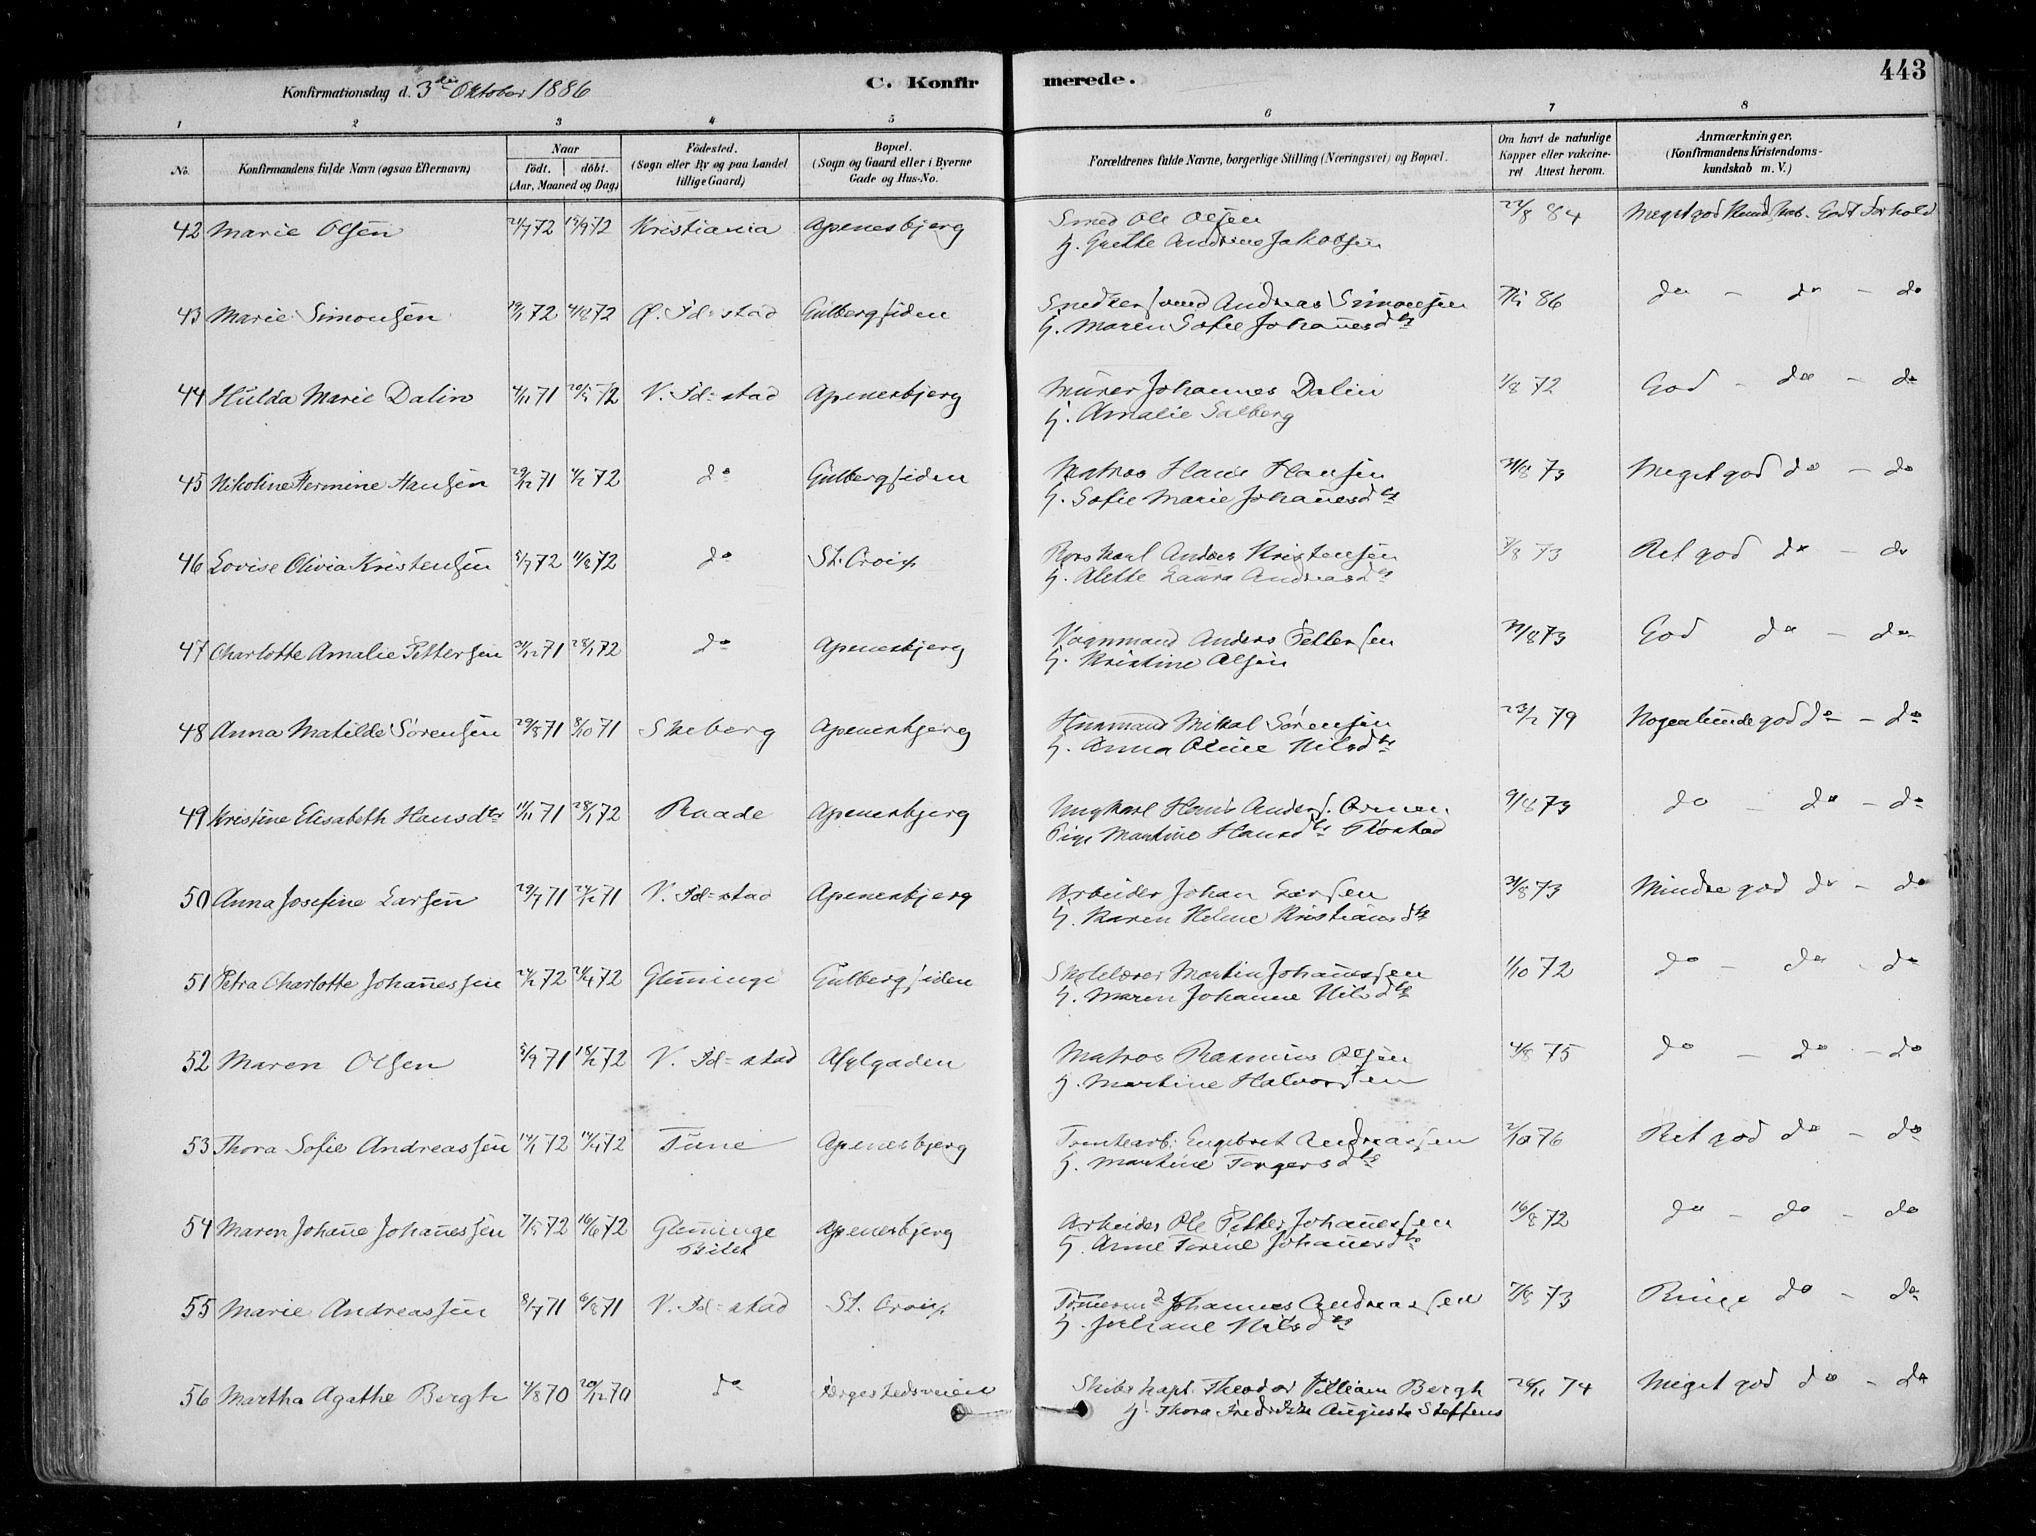 Konfirmationsdag d. 3die Oktober 1886
C. Konfirmerede.
443
1 2 3 4 5 6 7 8
No.
Konfirmandens fulde Navn (ogsaa Efternavn)
Naar
födt. döbt.
(Aar, Maaned og Dag)
Födested.
(Sogn eller By og paa Landet
tillige Gaard)
Bopæl.
(Sogn og Gaard eller i Byerne
Gade og Hus-No.
Forældrenes fulde Navne, borgerlige Stilling (Næringsvei) og Bopæl.
Om havt de naturlige
Kopper eller vakcine-
ret Attest herom.
Anmærkninger.
(Konfirmandens Kristendoms-
kundskab m. V.)
42 Marie Olsen 21/7 72 15/9 72 Kristiania Apenesbjerg Smed Ole Olsen 22/8 84 Meget god Kundskab. Godt Forhold
H. Grethe Andrine Jakobsen
43 Marie Simonsen 19/1 72 4/8 72 Ø. Fd=stad Gulbergsiden Snedkersvend Andreas Simonsen 86 do - do - do
H. Maren Sofie Johannesdtr
44 Hulda Marie Dalin 4/11 71 20/5 72 V. Fd=stad Apenesbjerg Murer Johannes Dalin 1/8 72 God - do - do
H. Amalie Salberg
45 Nikoline Hermine Hansen 29/12 71 4/2 72 do Gulbergsiden Matros Hans Hansen 73 Meget god do - do
H. Sofie Marie Johannesdtr
46 Lovise Olivia Kristensen 5/7 72 11/8 72 do St. Croix Anders Kristensen 7/8 73 Ret god do - do
H. Alette Laura Andreasdtr
47 Charlotte Amalie Pettersen 31/12 71 28/1 72 do Apenesbjerg Vognmand Anders Pettersen 21/8 73 God do - do
H. Kristine Olsen
48 Anna Matilde Sørensen 29/8 71 8/10 71 Skeberg Apenesbjerg Husmand Mikal Sørensen 23/2 79 Nogenlunde god do - do
H. Anna Oline Nilsdtr
49 Kristine Elisabeth Hansdtr 11/11 71 28/1 72 Raade Apenesbjerg Ungkarl Hans Anders. 9/8 73 do - do - do
Pige Martine Hansdtr
50 Anna Josefine Larsen 29/7 71 71 V. Fd=stad Apenesbjerg Arbeider Johan Larsen 31/8 73 Mindre god do - do
H. Maren Helene Kristiansdtr
51 Petra Charlotte Johannessen 72 21/4 72 Glemminge Gulbergsiden Skolelærer Martin Johannessen 1/10 72 do - do - do
H. Maren Johanne Nilsdtr
52 Maren Olsen 5/9 71 18/2 72 V. Fd=stad Asylgaden Matros Rasmus Olsen 4/8 75 do - do - do
H. Martine Halvorsen
53 Thora Sofie Andreassen 14/1 72 14/4 72 Tune Apenesbjerg Tomtearb. Engebret Andreassen 2/10 76 Ret god do - do
H. Martine Torgersdtr
54 Maren Johanne Johannessen 7/5 72 16/6 72 Glemminge Apenesbjerg Arbeider Ole Petter Johannessen 16/8 72 do - do - do
H. Anne Torine Johannesdtr
55 Marie Andreassen 8/7 71 6/8 71 V. Fd=stad St. Croix Tømermd Johannes Andreassen 7/8 73 Ringe do - do
H. Juliane Nilsdtr
56 Martha Agathe Bergh 4/8 70 20/12 70 do Færgestedsveien Skibskapt. Theodor William Bergh 26/11 74 Meget god do - do
H. Thora Fredrikke Auguste Steffens